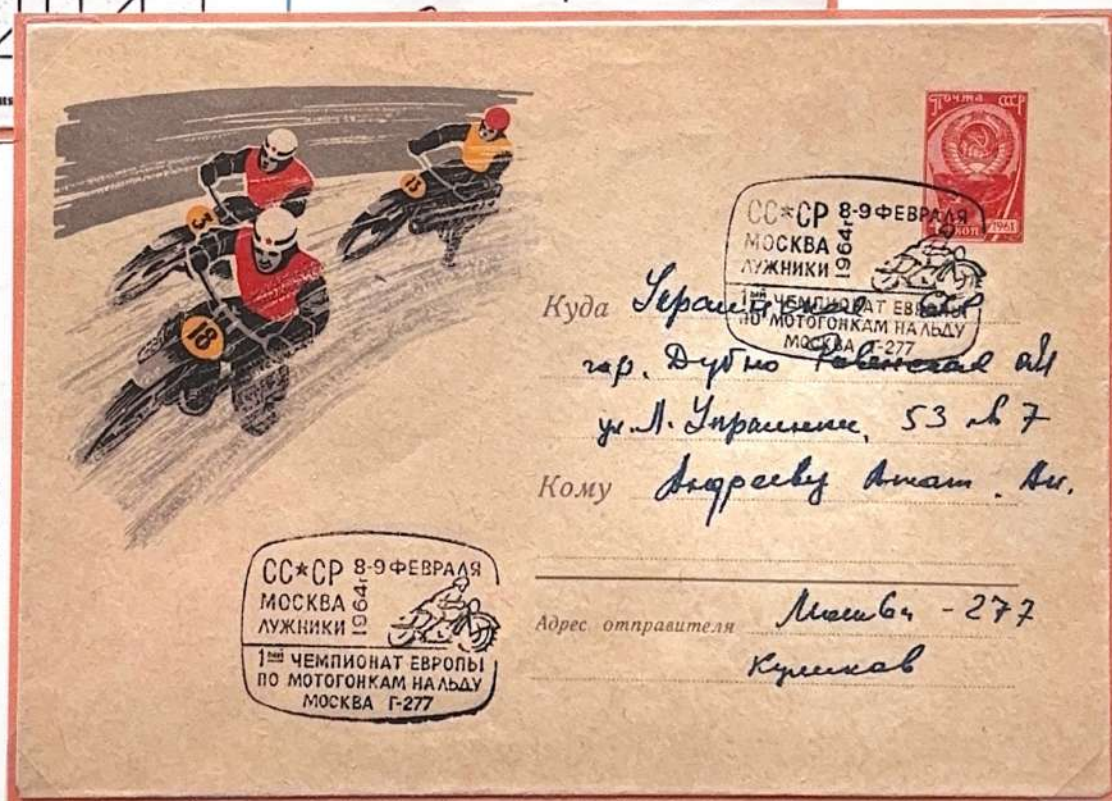 Почта СССР
4 коп 1961
СС*СР 8-9 ФЕВРАЛЯ
МОСКВА
ЛУЖНИКИ 1964г
1ый ЧЕМПИОНАТ ЕВРОПЫ
ПО МОТОГОНКАМ НА ЛЬДУ
МОСКВА Г-277
13
3
18
Куда Украинская ССР
гор. Дубно Ровенская обл
ул. Л. Украинки, 53 кв 7
Кому Андрееву Анат. Ан.
СС*СР 8-9 ФЕВРАЛЯ
МОСКВА
ЛУЖНИКИ 1964г
1ый ЧЕМПИОНАТ ЕВРОПЫ
ПО МОТОГОНКАМ НА ЛЬДУ
МОСКВА Г-277
Адрес отправителя Москва - 277
Куликов